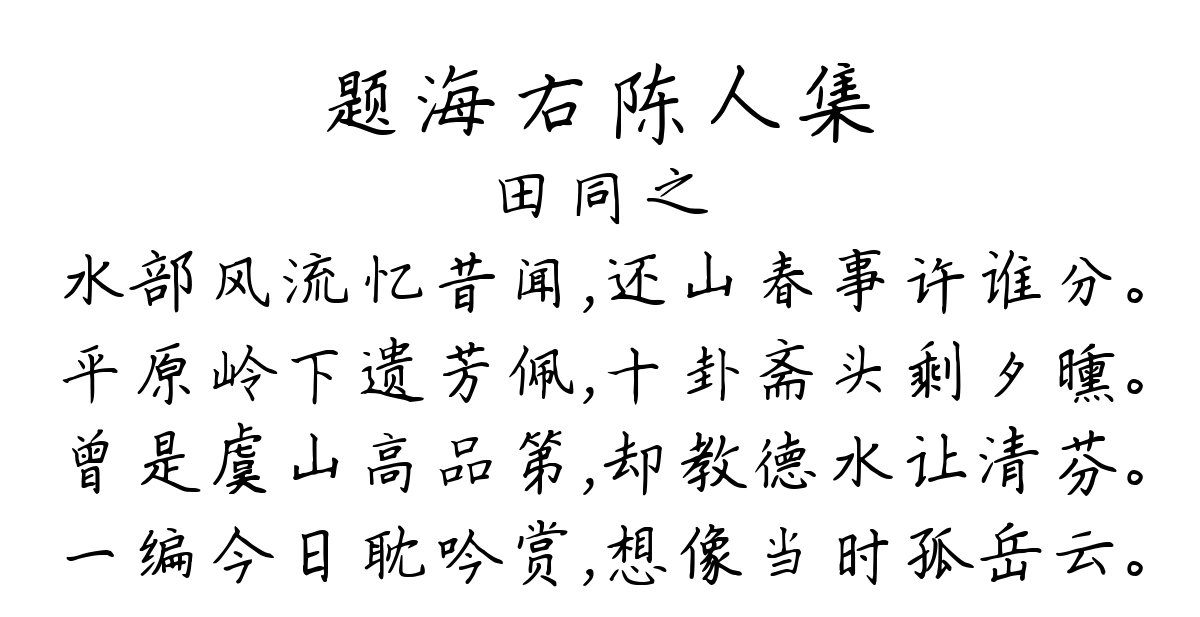 题海右陈人集
田同之
水部风流忆昔闻,还山春事许谁分。
平原岭下遗芳佩,十卦斋头剩夕曛。
曾是虞山高品第,却教德水让清芬。
一编今日耽吟赏,想像当时孤岳云。